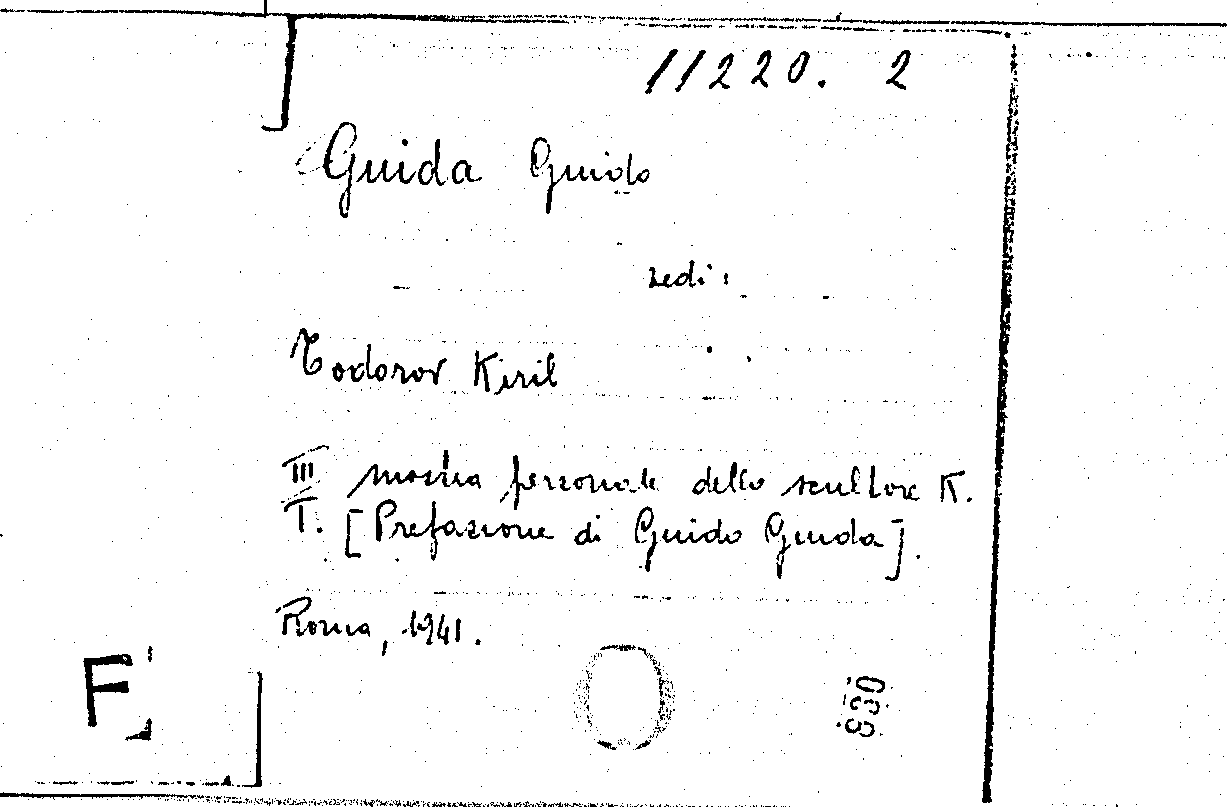 11220. 2
Guida Guido
vedi:
Todorov Kiril
III mostra personale dello scultore K.
T. [Prefazione di Guido Guida].
Roma, 1941.
F
830